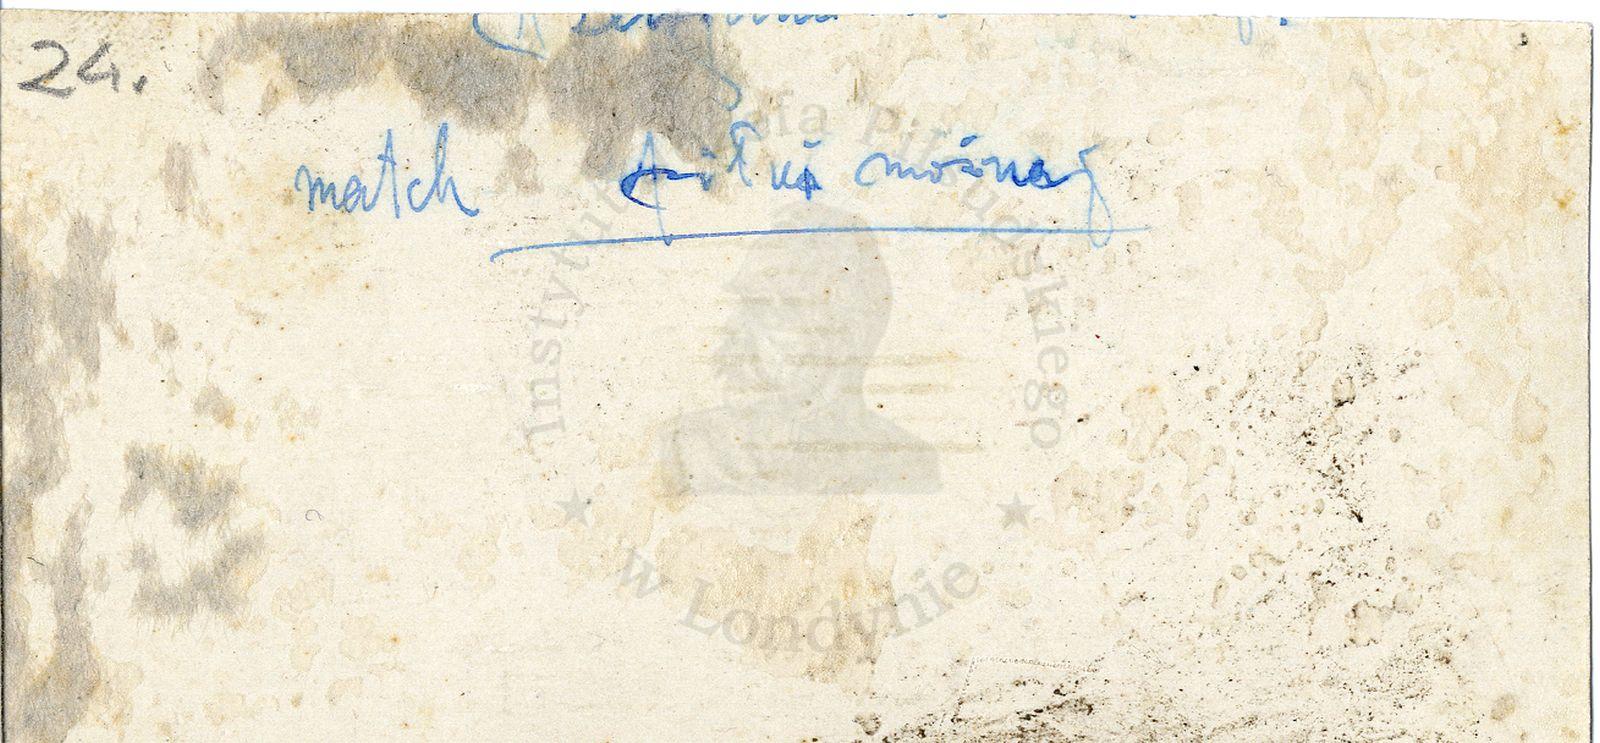 24.
match piłki nożnej
Instytut Józefa Piłsudskiego
w Londynie